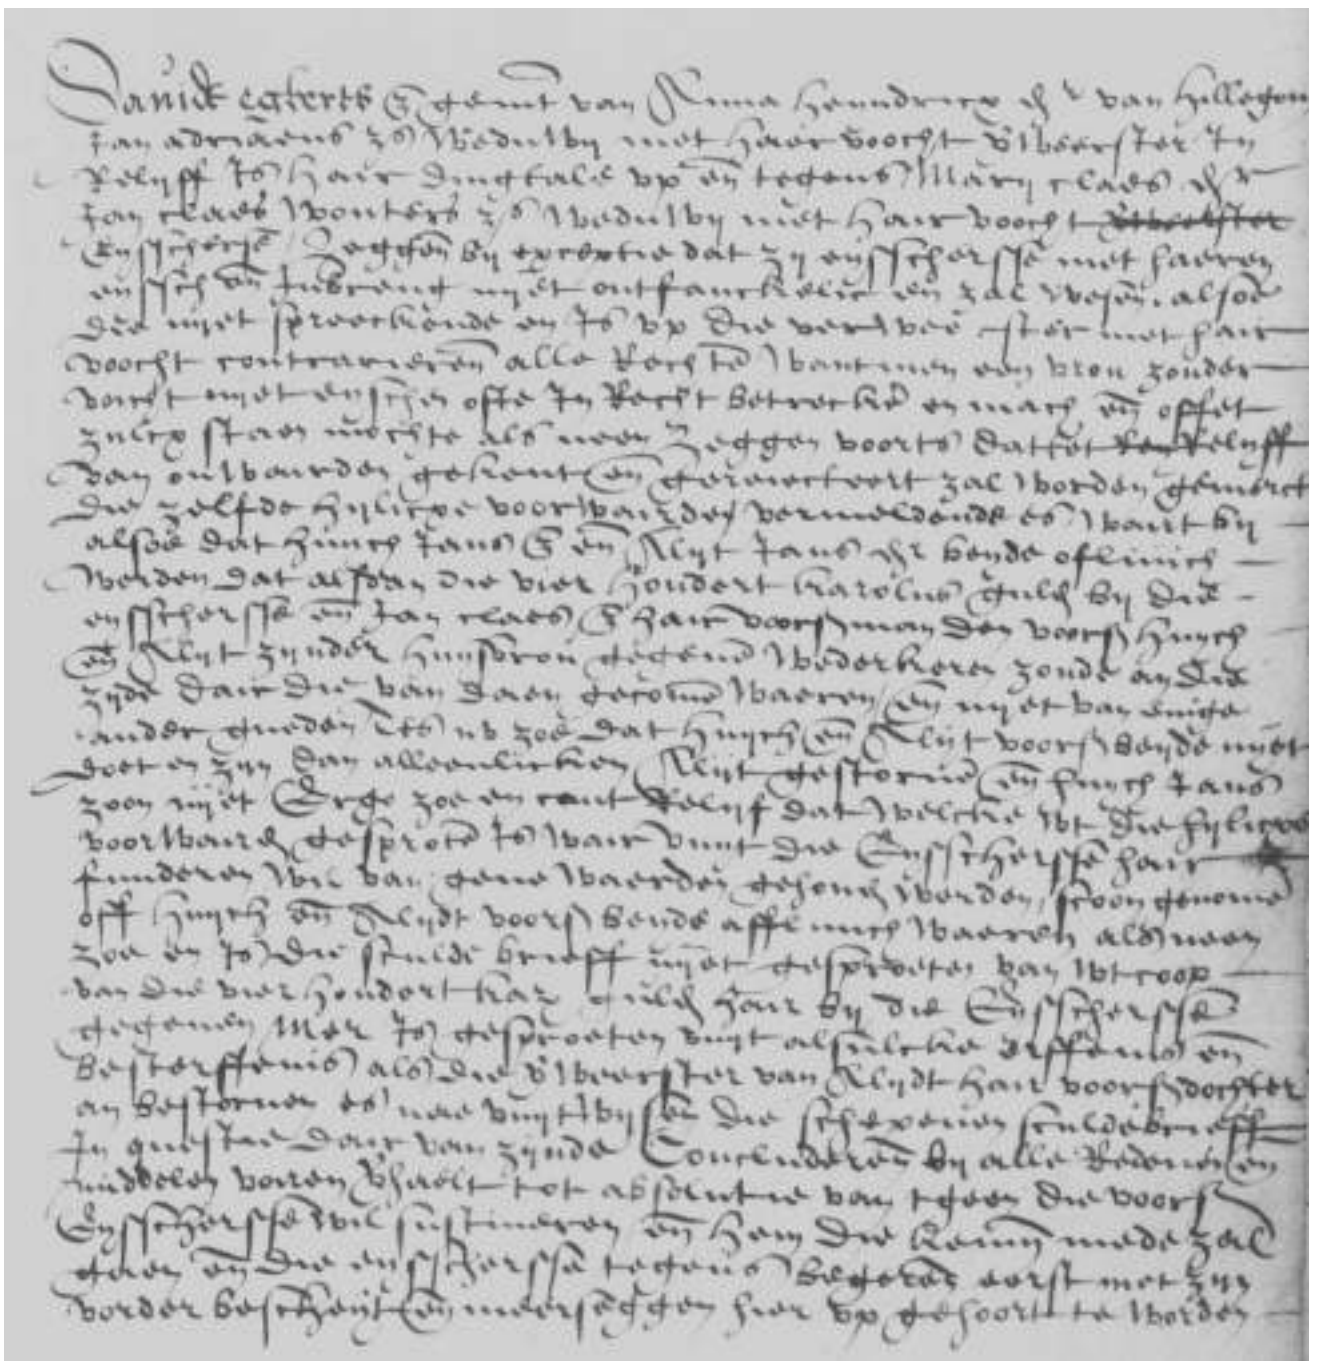 Davidt egberts z gemt van Anna henndricx dr van hillegom
Jan adriaens zs Weduwij met haer voocht vweerster In
Relijff Is hair dingtale vp en tegens Marij claes dr
Jan claes wouters zs weduwij met hair voocht
Eijsscherse zeggen bij exceptie dat zij eijsschersse met haeren
eijssch en Inbreng nijet ontfanckelic en zal wesen alsoe
die nijet spreeckende en Is vp die verwee ster met hair
voocht contrarieren alle Rechte want men een vrou zonder
voocht nijet eijschen ofte In Recht betrecke en mach en offet
zulcx staen mochte als neen zeggen voorts dattet Relijff
van onwaarden gekent en gereiecteert zal worden gemerct
die zelfde hijlicxe voorwairden vermeldende es wairt bij
alsoe dat huijch Jans z en Alijt Jans dr beyde oflivich
worden dat alsdan die vier hondert karolus guld bij die
eijsschersse en Jan claes z hair voors man den voors huijch
en Alijt zijnder huijsvrou gegeue wederkeren zoude an die
zijde dair die van daen gecome waeren en nijet van enige
ander gueden Ist nv zoe dat huijch en Alijt voors beyde nijet
doet en zijn dan alleenlicken Alijt gestorue en huijch Jans
zoon nijet Ergo zoe en cant Relijf dat welcke wt die hijlicxe
voorwaird gesprote Is wair vuyt die Eijsschersse hair
funderen wil van gene waerden gehoud werden, scoon genome
off huijch en Alijdt voors beyde afflivich waeren als neen
zoe en Is die sculde brieff nijet gesproeten van wtcoop
van die vier hondert kar guld hair bij die Eijsschersse
gegeuen Mer Is gesproeten vuijt alsulcke erffenis en
besterffenis als die vweerster van Alijdt hair voors dochter
an bestoruen es nae vuijtwijsen die schepenen sculdebrieff
In questie dair van zijnde Concluderen bij alle Redenen en
middelen voiren vhaelt tot absolutie van tgeen die voors
Eijsschersse wil sustineren en hem die kennis mede zal
gaen en die eijsschersse tegens begeren eerst met zijn
vorder bescheijt en meerseggen hier vp gehoort te worden